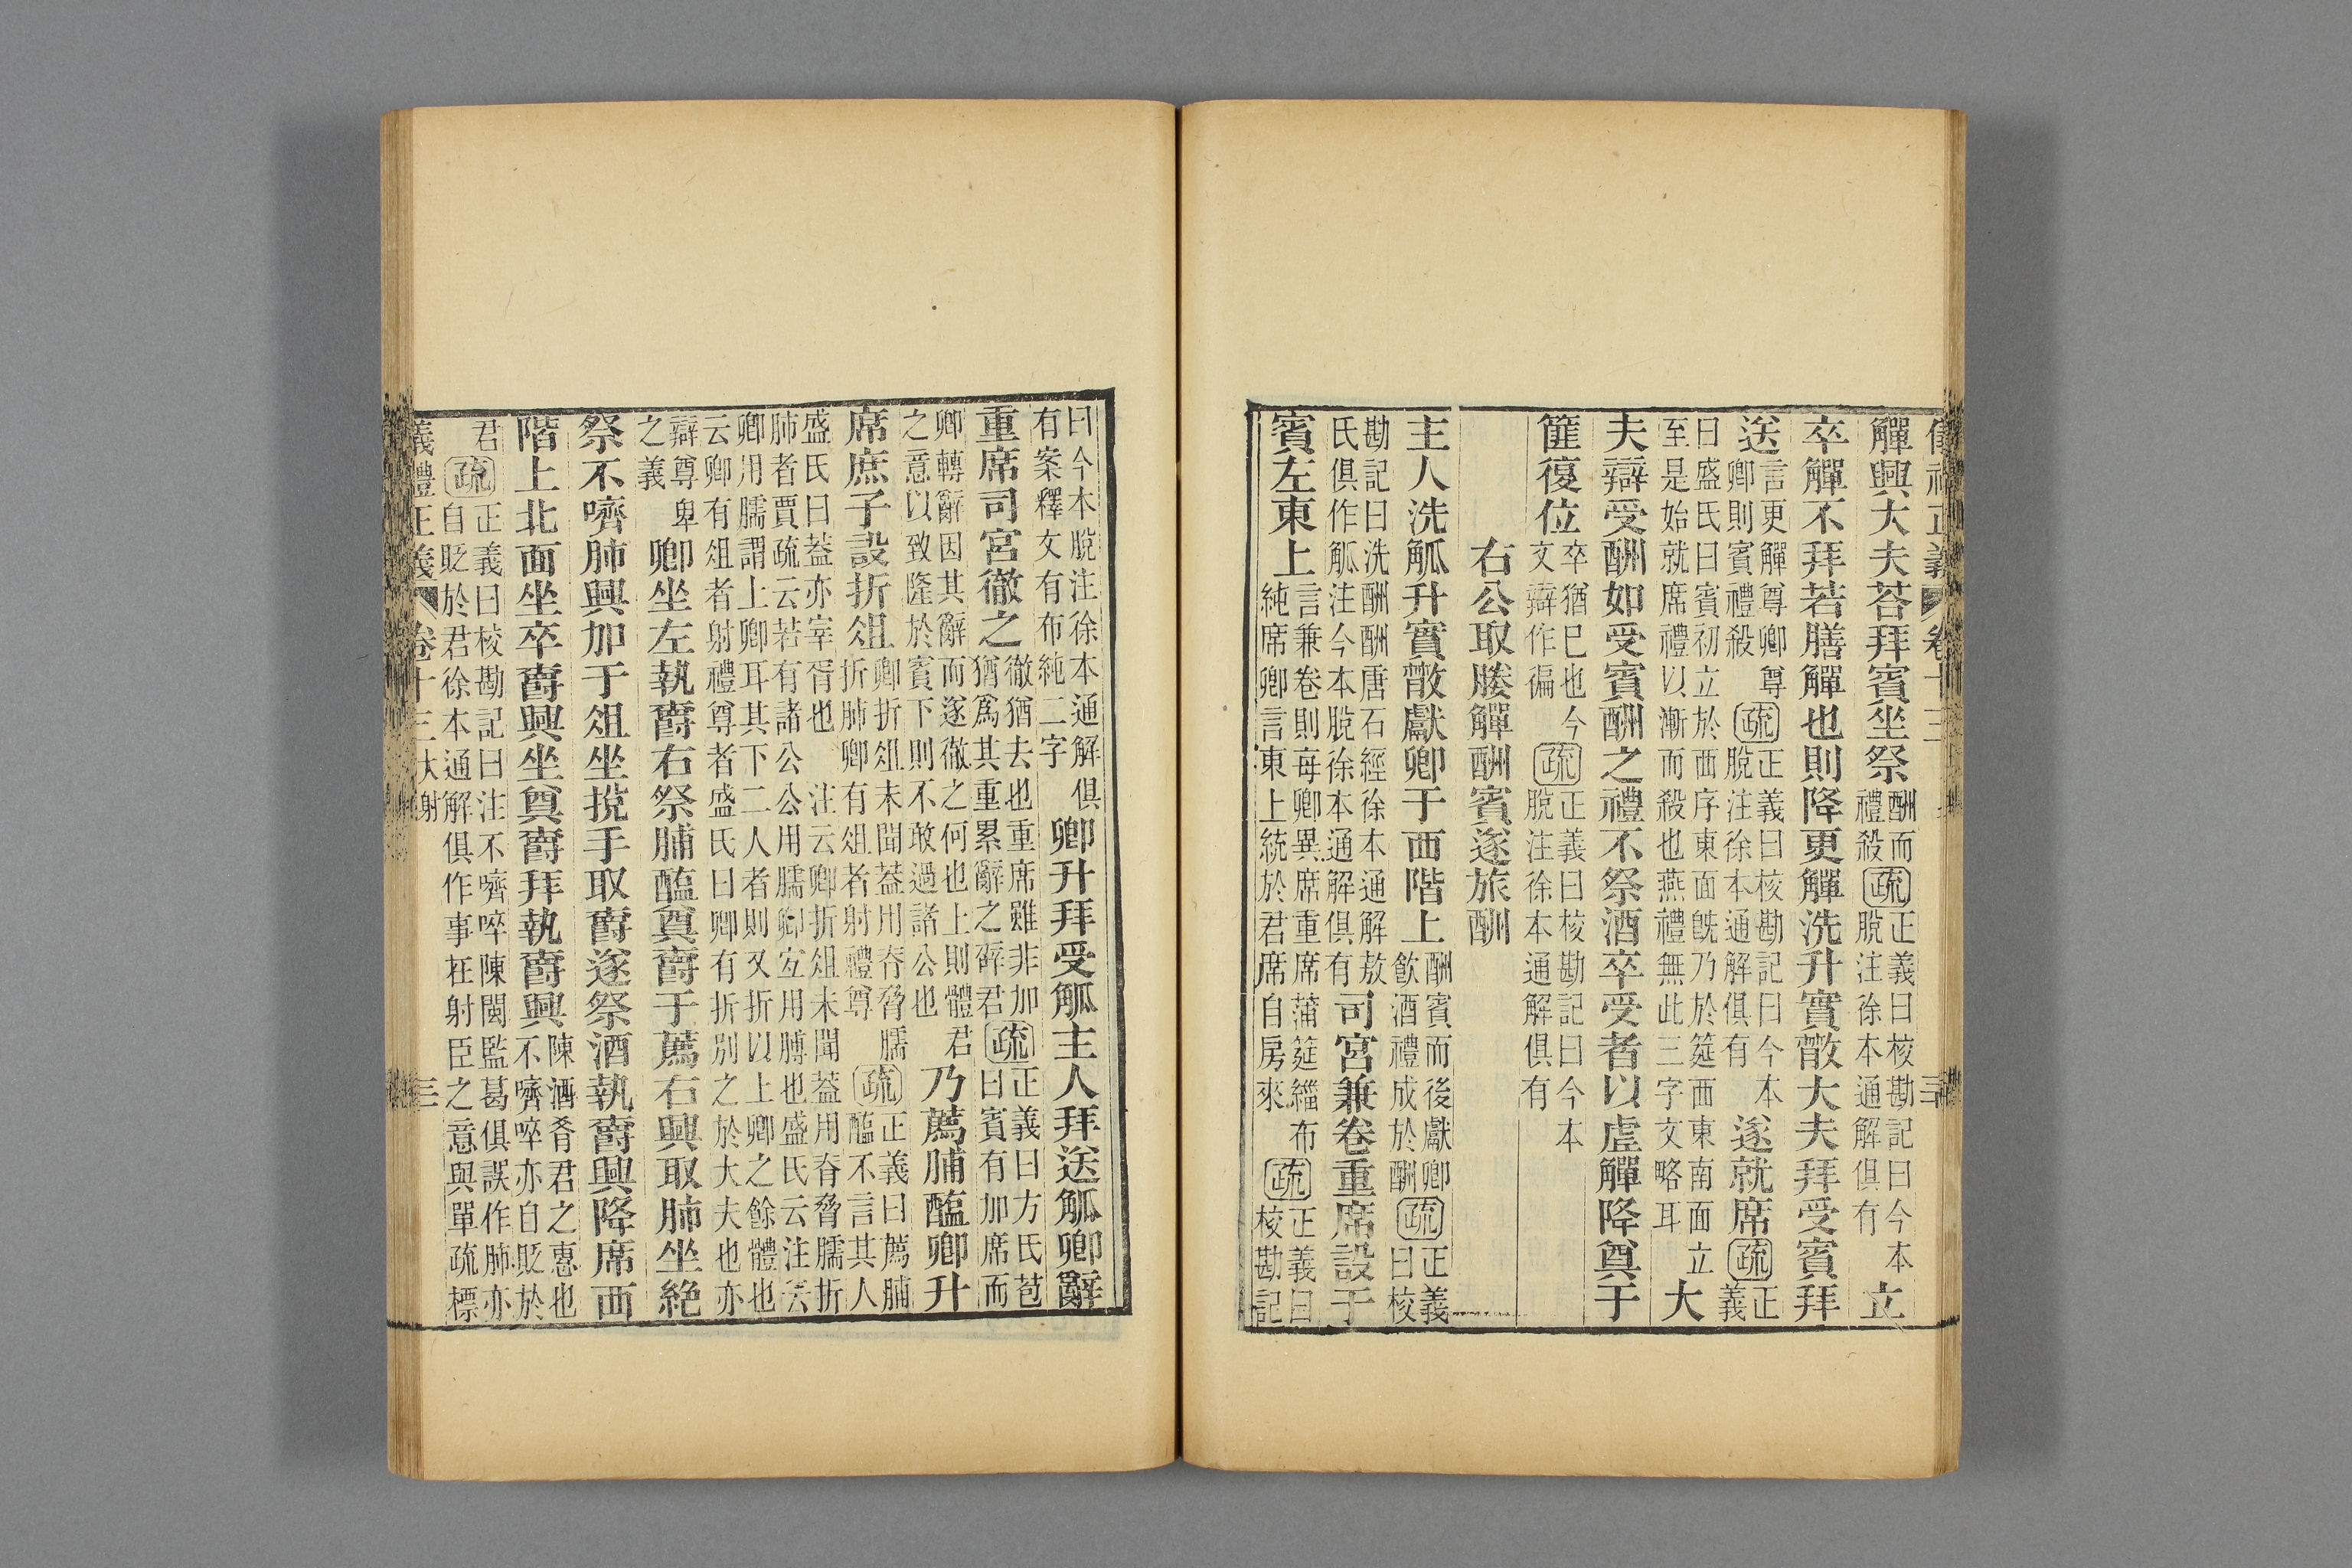 儀禮正義 卷十三
觶興大夫荅拜賓坐祭 酬而禮殺 疏 正義曰校勘記曰今本脫注徐本通解俱有 立
卒觶不拜若膳觶也則降更觶洗升實散大夫拜受賓拜
送 言更觶尊卿尊卿則賓禮殺 疏 正義曰校勘記曰今本脫注徐本通解俱有 遂就席 疏 正義
曰盛氏曰賓初立於西序東面旣乃於筵西東南面立至是始就席禮以漸而殺也燕禮無此三字文略耳 大
夫辯受酬如受賓酬之禮不祭酒卒受者以虛觶降奠于
篚復位 卒猶已也今文辯作徧 疏 正義曰校勘記曰今本脫注徐本通解俱有
右公取媵觶酬賓遂旅酬
主人洗觚升實散獻卿于西階上 酬賓而後獻卿飲酒禮成於酬 疏 正義曰校
勘記曰洗酬酬唐石經徐本通解敖氏俱作觚注今本脫徐本通解俱有 司宮兼卷重席設于
賓左東上 言兼卷則每卿異席重席蒲筵緇布純席卿言東上統於君席自房來 疏 正義曰校勘記
曰今本脫注徐本通解俱有案釋文有布純二字 卿升拜受觚主人拜送觚卿辭
重席司宮徹之 徹猶去也重席雖非加猶爲其重累辭之辟君 疏 正義曰方氏苞曰賓有加席而
卿轉辭因其辭而遂徹之何也上則體君之意以致隆於賓下則不敢過諸公也 乃薦脯醢卿升
席庶子設折俎 卿折俎未聞葢用脊脅臑折肺卿有俎者射禮尊 疏 正義曰薦脯醢不言其人
盛氏曰葢亦宰胥也 注云卿折俎未聞葢用脊脅臑折肺者賈疏云若有諸公公用臑卿宜用膊也盛氏云注云
卿用臑謂上卿耳其下二人者則又折以上卿之餘體也云卿有俎者射禮尊者盛氏曰卿有折別之於大夫也亦
辯尊卑之義 卿坐左執爵右祭脯醢奠爵于薦右興取肺坐絕
祭不嚌肺興加于俎坐挩手取爵遂祭酒執爵興降席西
階上北面坐卒爵興坐奠爵拜執爵興 陳酒肴君之惠也不嚌啐亦自貶於
君 疏 正義曰校勘記曰注不嚌啐陳閩監葛俱誤作肺亦自貶於君徐本通解俱作事在射臣之意與單疏標
義禮正義 卷十三 大射